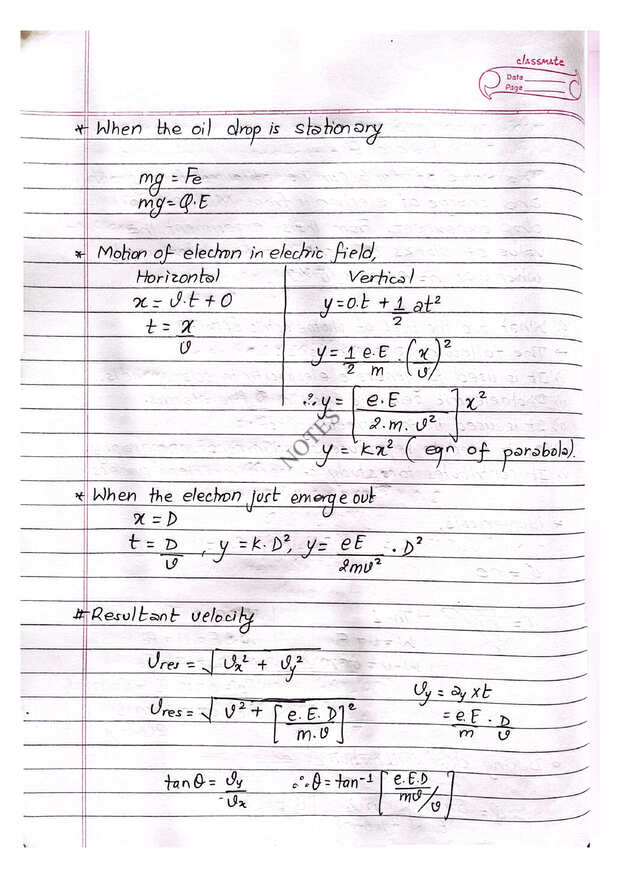 classmate
Date
Page
* When the oil drop is stationary
mg = Fe
mg = Q.E
* Motion of electron in electric field,
Horizontal
x = v.t + 0
t = x/v
Vertical
y = 0.t + 1/2 at²
y = 1/2 e.E/m . (x/v)²
∴ y = [e.E/2.m.v²] x²
y = kx² (eqn of parabola).
NOTES
* When the electron just emerge out
x = D
t = D/v , y = k.D², y = eE/2mv² . D²
# Resultant velocity
vres = √vx² + vy²
vres = √v² + [e.E.D/m.v]²
vy = ay × t
= e.E/m . D/v
tanθ = vy/vx ∴ θ = tan⁻¹ [e.E.D/mv/v]